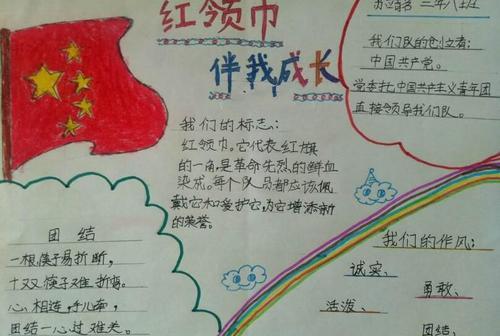 红领巾
伴我成长
年八班
我们队的创立者:
中国共产党。
党委托中国共产主义青年团
直接领导我们队。
我们的标志:
红领巾。它代表红旗
的一角,是革命先烈的鲜血
染成。每个队员都应该佩
戴它和爱护它,为它增添新
的荣誉。
团 结
一根筷子易折断,
十双筷子难折弯。
心相连,手儿牵,
团结一心过难关。
我们的作风:
诚实、
勇敢、
活泼、
团结、